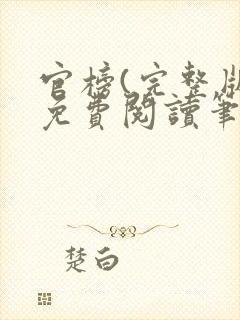 官榜(完整版
免費閱讀筆
楚白